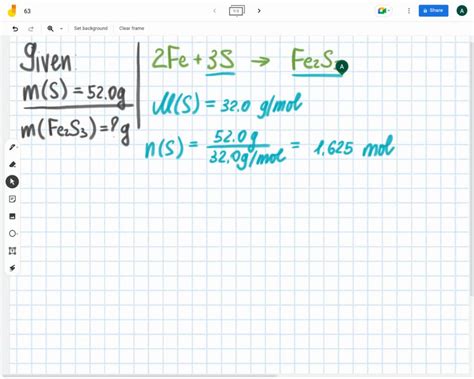 63
Share
A
Set background
Clear frame
Given
m(S) = 52.0g
m(Fe₂S₃) = ? g
2Fe + 3S → Fe₂S₃
A
M(S) = 32.0 g/mol
n(S) = 52.0g / 32.0g/mol = 1.625 mol